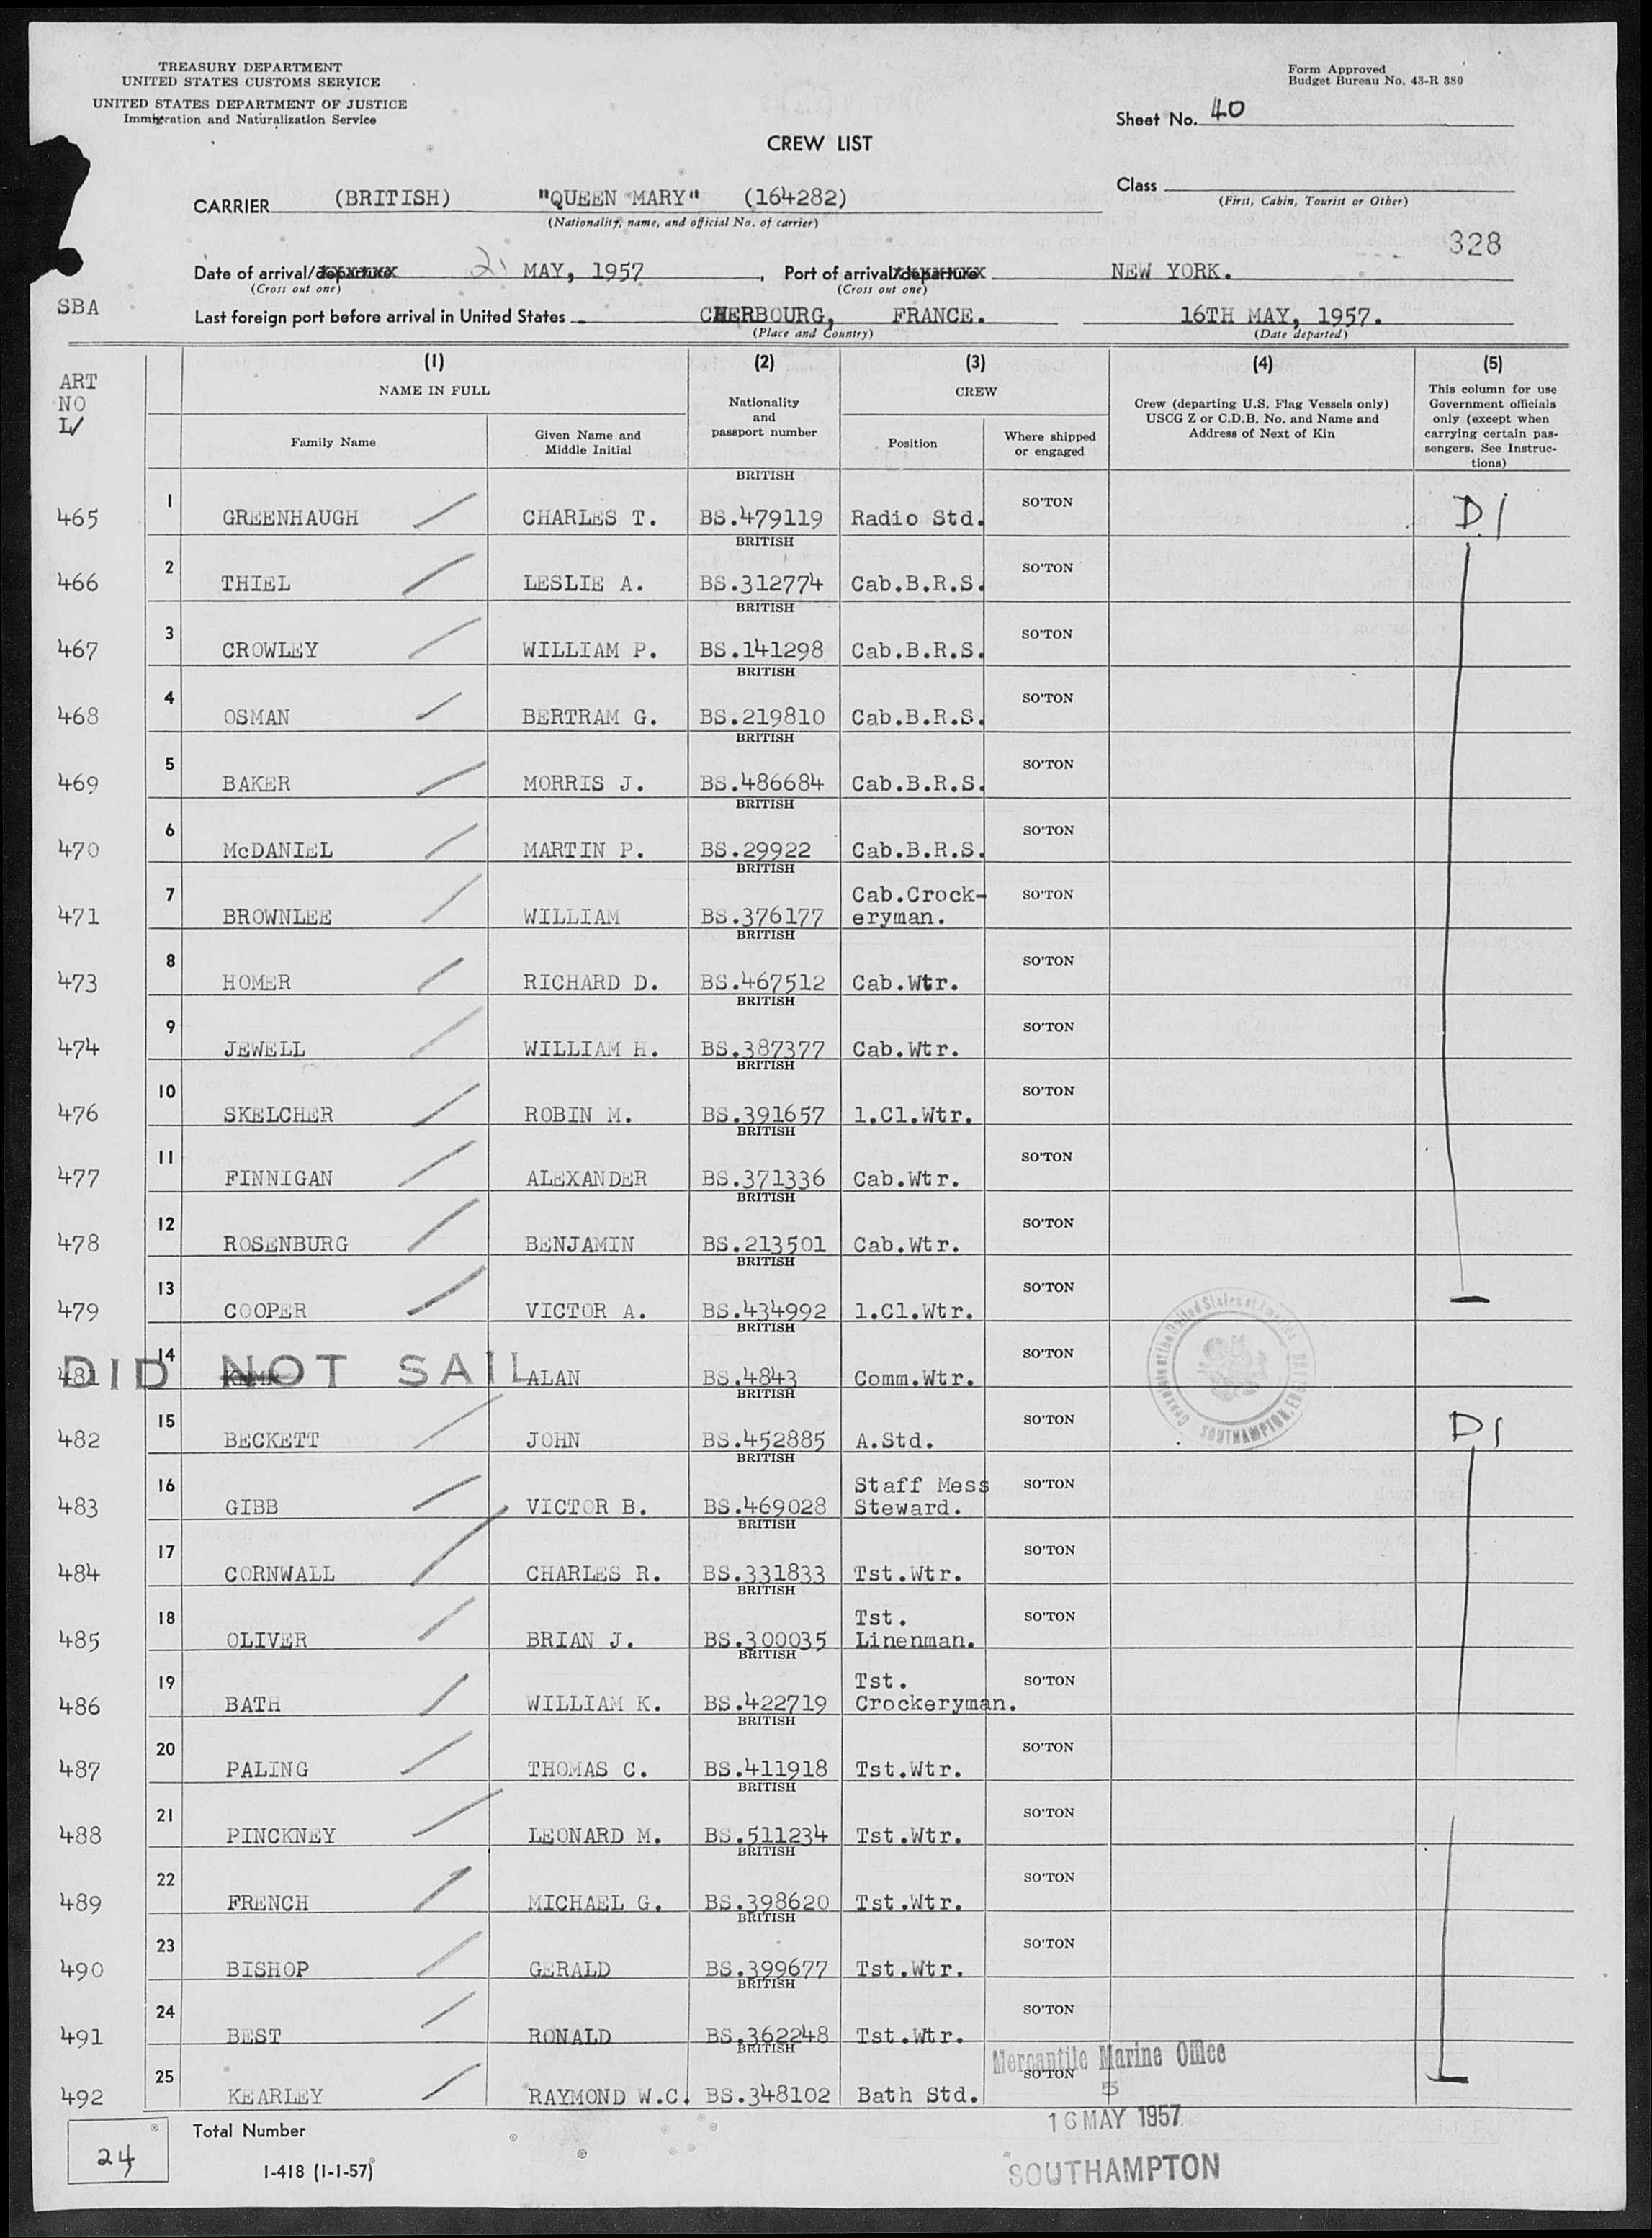 TREASURY DEPARTMENT
UNITED STATES CUSTOMS SERVICE
UNITED STATES DEPARTMENT OF JUSTICE
Immigration and Naturalization Service
Form Approved
Budget Bureau No. 43-R 380
Sheet No. 40
CREW LIST
Class
(First, Cabin, Tourist or Other)
CARRIER (BRITISH) "QUEEN MARY" (164282)
(Nationality, name, and official No. of carrier)
328
Date of arrival/departure 21 MAY, 1957, Port of arrival/departure NEW YORK.
(Cross out one) (Cross out one)
SBA
Last foreign port before arrival in United States CHERBOURG, FRANCE. 16TH MAY, 1957.
(Place and Country) (Date departed)
ART
NO
L/
(1) (2) (3) (4) (5)
NAME IN FULL
Family Name
Given Name and
Middle Initial
Nationality
and
passport number
CREW
Position
Where shipped
or engaged
Crew (departing U.S. Flag Vessels only)
USCG Z or C.D.B. No. and Name and
Address of Next of Kin
This column for use
Government officials
only (except when
carrying certain pas-
sengers. See Instruc-
tions)
BRITISH
465 1 GREENHAUGH CHARLES T. BS.479119 Radio Std. SO'TON D1
BRITISH
466 2 THIEL LESLIE A. BS.312774 Cab.B.R.S. SO'TON
BRITISH
467 3 CROWLEY WILLIAM P. BS.141298 Cab.B.R.S. SO'TON
BRITISH
468 4 OSMAN BERTRAM G. BS.219810 Cab.B.R.S. SO'TON
BRITISH
469 5 BAKER MORRIS J. BS.486684 Cab.B.R.S. SO'TON
BRITISH
470 6 McDANIEL MARTIN P. BS.29922 Cab.B.R.S. SO'TON
BRITISH
Cab.Crock-
471 7 BROWNLEE WILLIAM BS.376177 eryman. SO'TON
BRITISH
473 8 HOMER RICHARD D. BS.467512 Cab.Wtr. SO'TON
BRITISH
474 9 JEWELL WILLIAM H. BS.387377 Cab.Wtr. SO'TON
BRITISH
476 10 SKELCHER ROBIN M. BS.391657 1.Cl.Wtr. SO'TON
BRITISH
477 11 FINNIGAN ALEXANDER BS.371336 Cab.Wtr. SO'TON
BRITISH
478 12 ROSENBURG BENJAMIN BS.213501 Cab.Wtr. SO'TON
BRITISH
479 13 COOPER VICTOR A. BS.434992 1.Cl.Wtr. SO'TON
BRITISH
DID NOT SAIL
481 14 ALAN BS.4843 Comm.Wtr. SO'TON
BRITISH
482 15 BECKETT JOHN BS.452885 A.Std. SO'TON D1
BRITISH
Staff Mess
483 16 GIBB VICTOR B. BS.469028 Steward. SO'TON
BRITISH
484 17 CORNWALL CHARLES R. BS.331833 Tst.Wtr. SO'TON
BRITISH
Tst.
485 18 OLIVER BRIAN J. BS.300035 Linenman. SO'TON
BRITISH
Tst.
486 19 BATH WILLIAM K. BS.422719 Crockeryman. SO'TON
BRITISH
487 20 PALING THOMAS C. BS.411918 Tst.Wtr. SO'TON
BRITISH
488 21 PINCKNEY LEONARD M. BS.511234 Tst.Wtr. SO'TON
BRITISH
489 22 FRENCH MICHAEL G. BS.398620 Tst.Wtr. SO'TON
BRITISH
490 23 BISHOP GERALD BS.399677 Tst.Wtr. SO'TON
BRITISH
491 24 BEST RONALD BS.362248 Tst.Wtr. SO'TON
BRITISH
492 25 KEARLEY RAYMOND W.C. BS.348102 Bath Std. SO'TON
Mercantile Marine Office
5
16 MAY 1957
SOUTHAMPTON
24
Total Number
I-418 (1-1-57)
of the United States of America
SOUTHAMPTON, ENGLAND